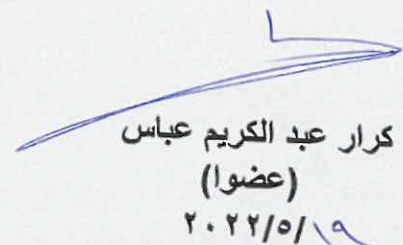 كرار عبد الكريم عباس
(عضوا)
٢٠٢٢/٥/١٩